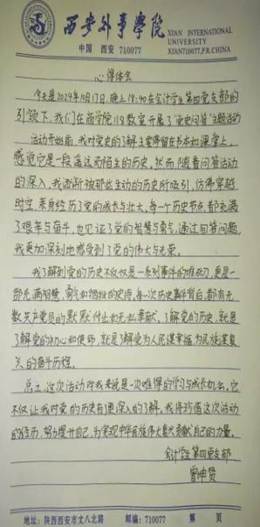 西安外事学院
XIAN INTERNATIONAL
UNIVERSITY
中国 西安 710077
XIAN710077,P.R.CHINA
心得体会
今天是2024年10月17日，晚上19:40在会计学生第四党支部的
引领下，我们在商学院119教室开展了"党史问答"主题活动
活动开始前，我对党史的了解主要停留在书本和课堂上，
感觉它是一段遥远而陌生的历史，然而随着问答活动
的深入，我渐渐被那些生动的历史所吸引，仿佛穿越
时空，亲身经历了党的成长与壮大，每一个历史节点，都充满
了艰辛与奋斗，也见证了党的智慧与勇气，通过回答问题，
我更加深刻地感受到了党的伟大与光荣。
我了解到党的历史不仅仅是一系列事件的堆砌，更是一
部充满智慧、勇气和牺牲的史诗，每一次历史事件背后，都有无
数共产党员的默默付出和无私奉献，了解党的历史，就是
了解党的初心和使命，就是了解党为人民谋幸福为民族谋复
兴的奋斗历程。
总之，这次活动对我来说是一次难得的学习与成长机会，它
不仅让我对党的历史有更深入的了解，我将珍惜这次活动
的经历，努力提升自己，为实现中华民族伟大复兴贡献自己的力量。
会计学生第四党支部
地址：陕西西安市丈八北路 邮编：710077 第 页